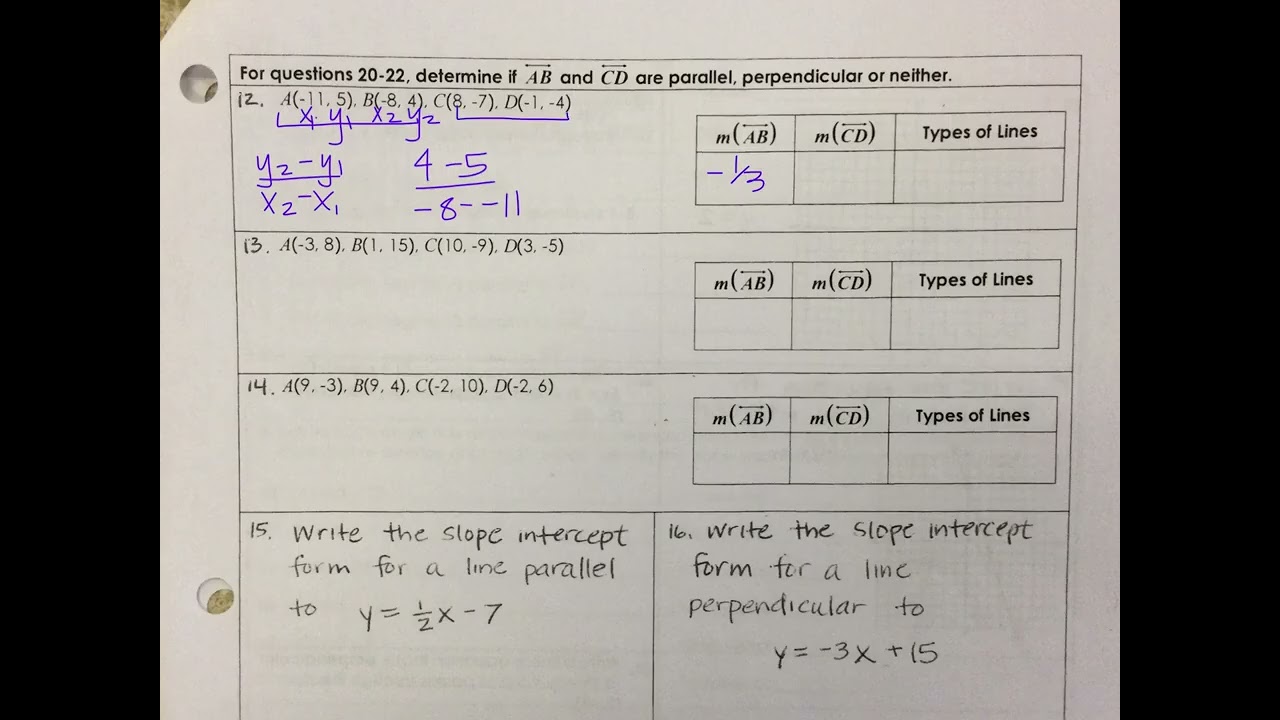 For questions 20-22, determine if AB and CD are parallel, perpendicular or neither.
12. A(-11, 5), B(-8, 4), C(8, -7), D(-1, -4)
x₁ y₁ x₂ y₂
y₂ - y₁ 4 - 5
x₂ - x₁ -8 - -11
m(AB) m(CD) Types of Lines
-1/3
13. A(-3, 8), B(1, 15), C(10, -9), D(3, -5)
m(AB) m(CD) Types of Lines
14. A(9, -3), B(9, 4), C(-2, 10), D(-2, 6)
m(AB) m(CD) Types of Lines
15. Write the slope intercept
form for a line parallel
to y = 1/2 x - 7
16. Write the slope intercept
form for a line
perpendicular to
y = -3x + 15